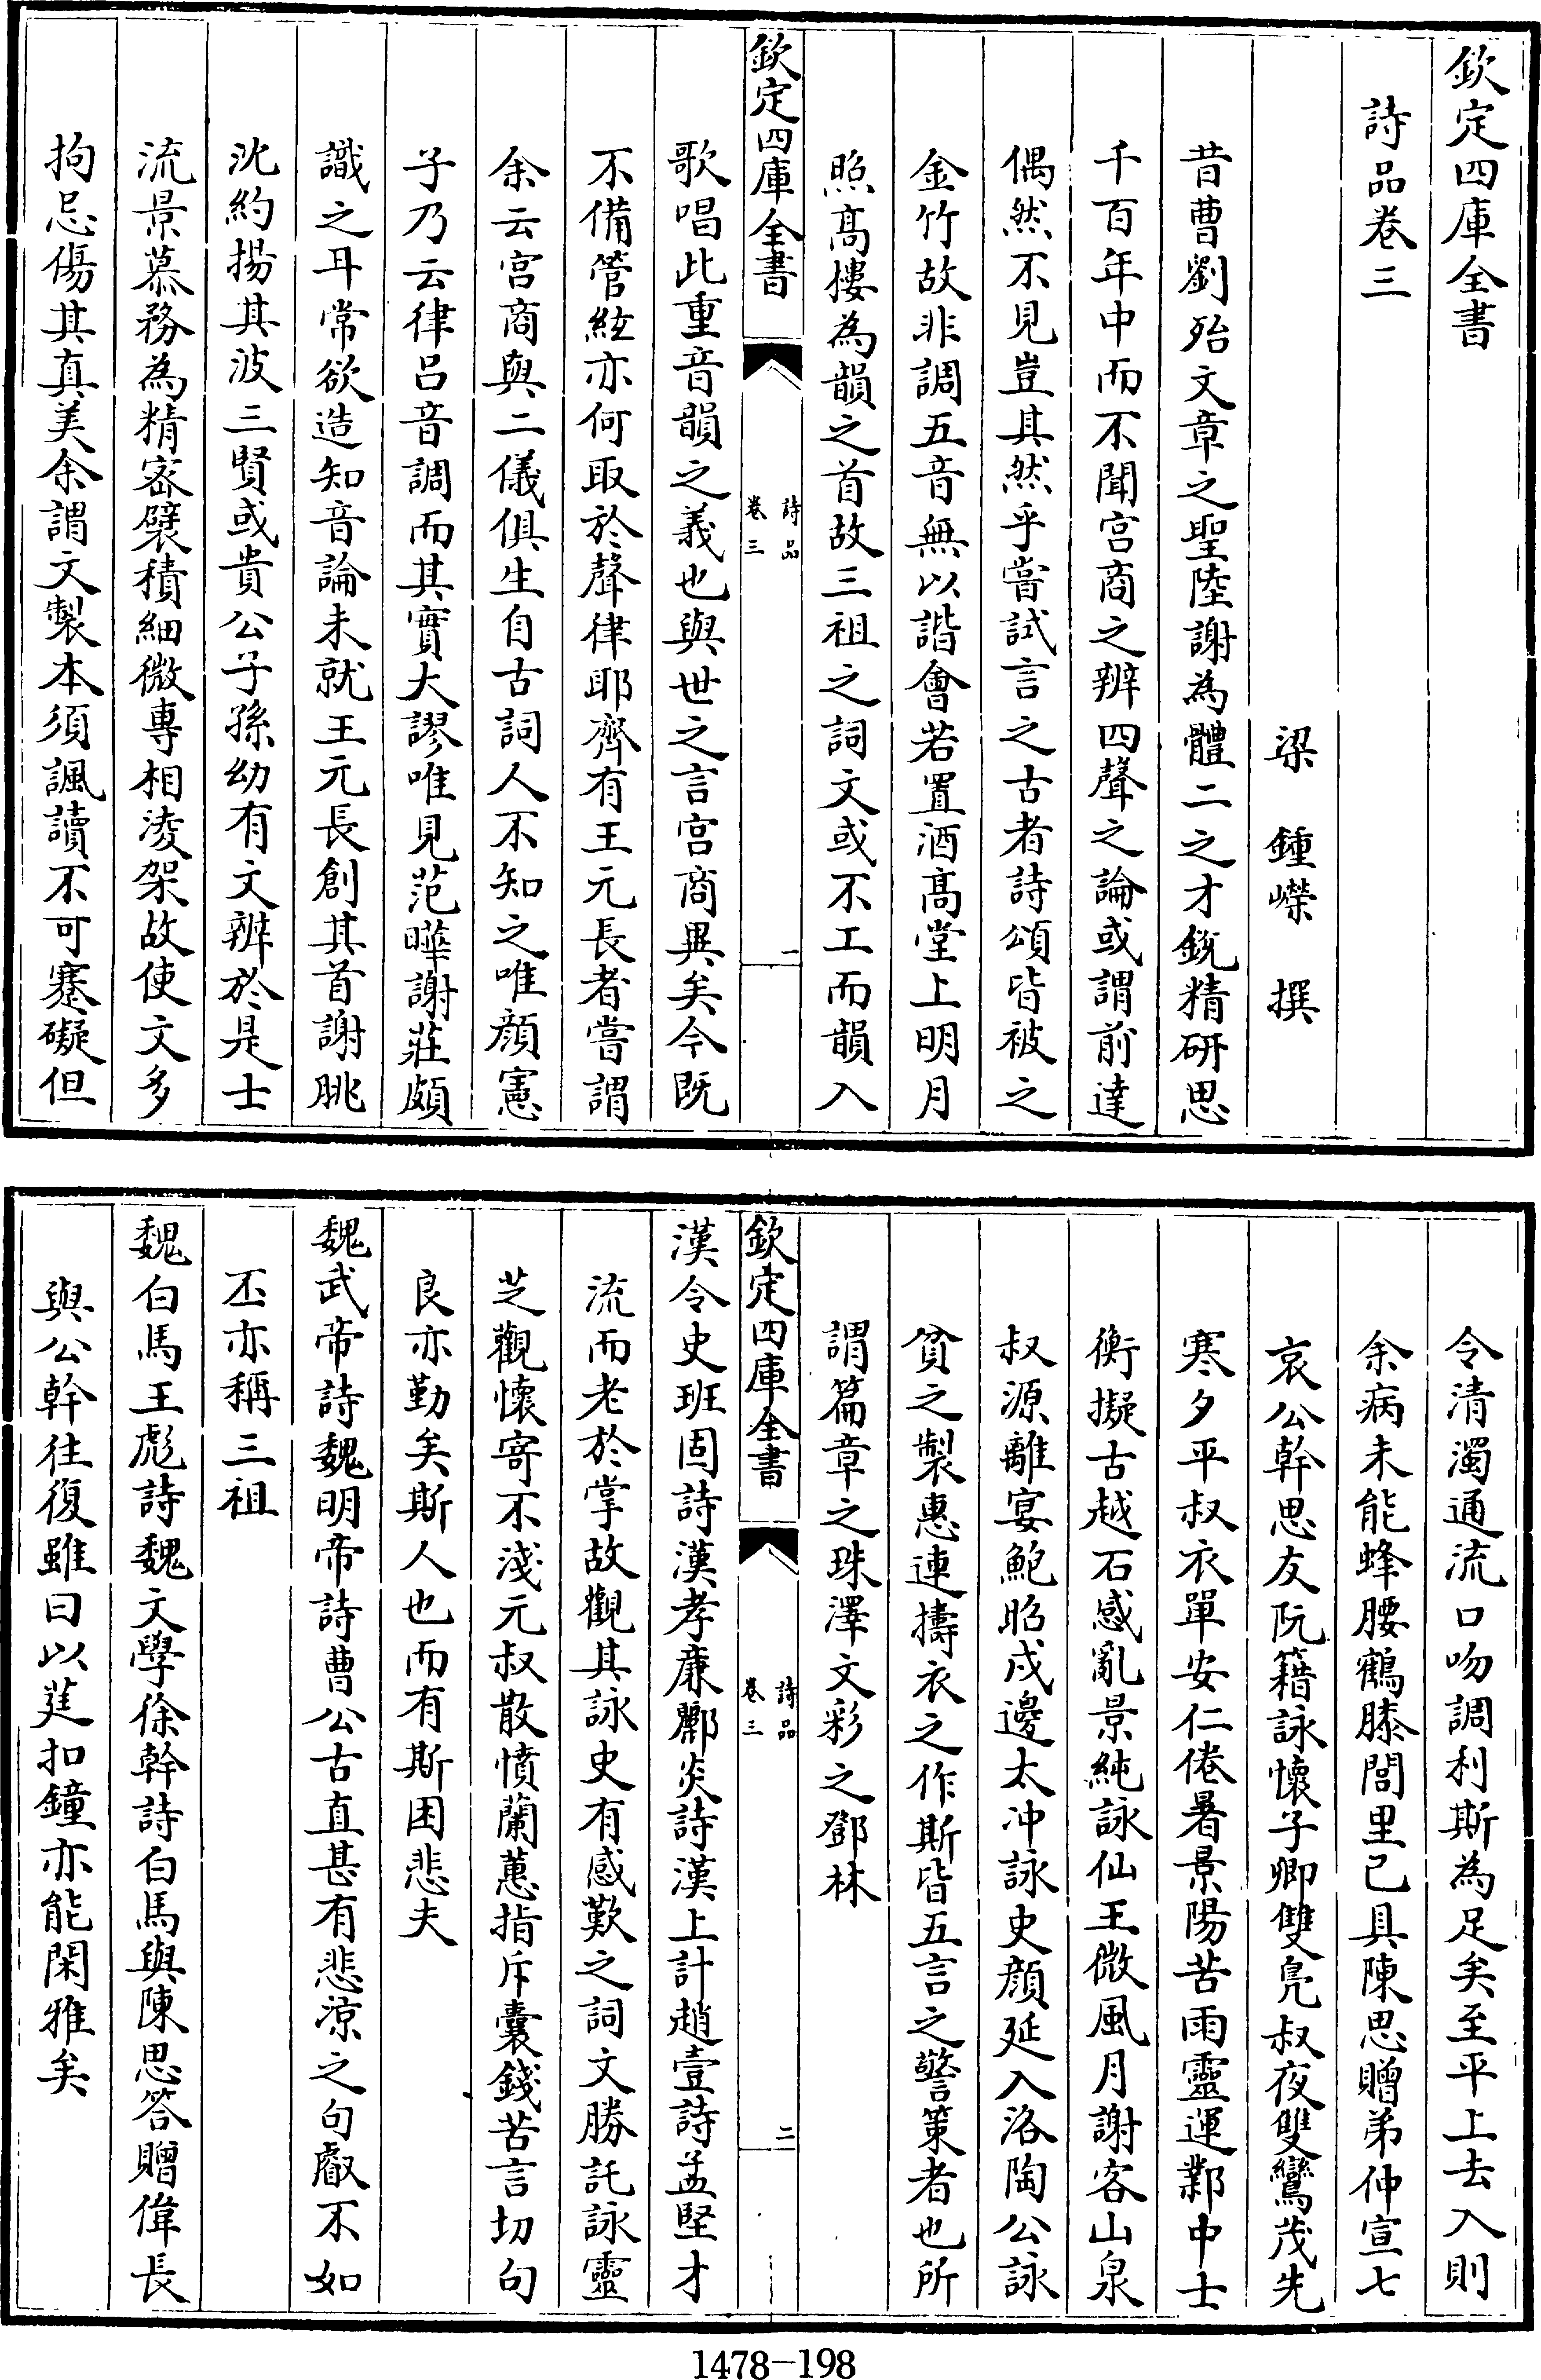 欽定四庫全書
詩品卷三
梁 鍾嶸 撰
昔曹劉殆文章之聖陸謝為體二之才銳精研思
千百年中而不聞宫商之辨四聲之論或謂前達
偶然不見豈其然乎嘗試言之古者詩頌皆被之
金竹故非調五音無以諧會若置酒髙堂上明月
照髙樓為韻之首故三祖之詞文或不工而韻入
欽定四庫全書
詩品
卷三
一
歌唱此重音韻之義也與世之言宫商異矣今既
不備管絃亦何取於聲律耶齊有王元長者嘗謂
余云宫商與二儀俱生自古詞人不知之唯顔憲
子乃云律吕音調而其實大謬唯見范曄謝莊頗
識之耳常欲造知音論未就王元長創其首謝朓
沈約揚其波三賢或貴公子孫幼有文辨於是士
流景慕務為精宻襞積細微專相凌架故使文多
拘忌傷其真美余謂文製本須諷讀不可蹇礙但
令清濁通流口吻調利斯為足矣至平上去入則
余病未能蜂腰鶴膝閭里已具陳思贈弟仲宣七
哀公幹思友阮籍詠懷子卿雙鳬叔夜雙鸞茂先
寒夕平叔衣單安仁倦暑景陽苦雨靈運鄴中士
衡擬古越石感亂景純詠仙王微風月謝客山泉
叔源離宴鮑昭戍邊太冲詠史顔延入洛陶公詠
貧之製惠連擣衣之作斯皆五言之警策者也所
謂篇章之珠澤文彩之鄧林
欽定四庫全書
詩品
卷三
二
漢令史班固詩漢孝廉酈炎詩漢上計趙壹詩孟堅才
流而老於掌故觀其詠史有感歎之詞文勝託詠靈
芝觀懷寄不淺元叔散憤蘭蕙指斥囊錢苦言切句
良亦勤矣斯人也而有斯困悲夫
魏武帝詩魏明帝詩曹公古直甚有悲凉之句叡不如
丕亦稱三祖
魏白馬王彪詩魏文學徐幹詩白馬與陳思答贈偉長
與公幹往復雖曰以莛扣鐘亦能閑雅矣
1478-198